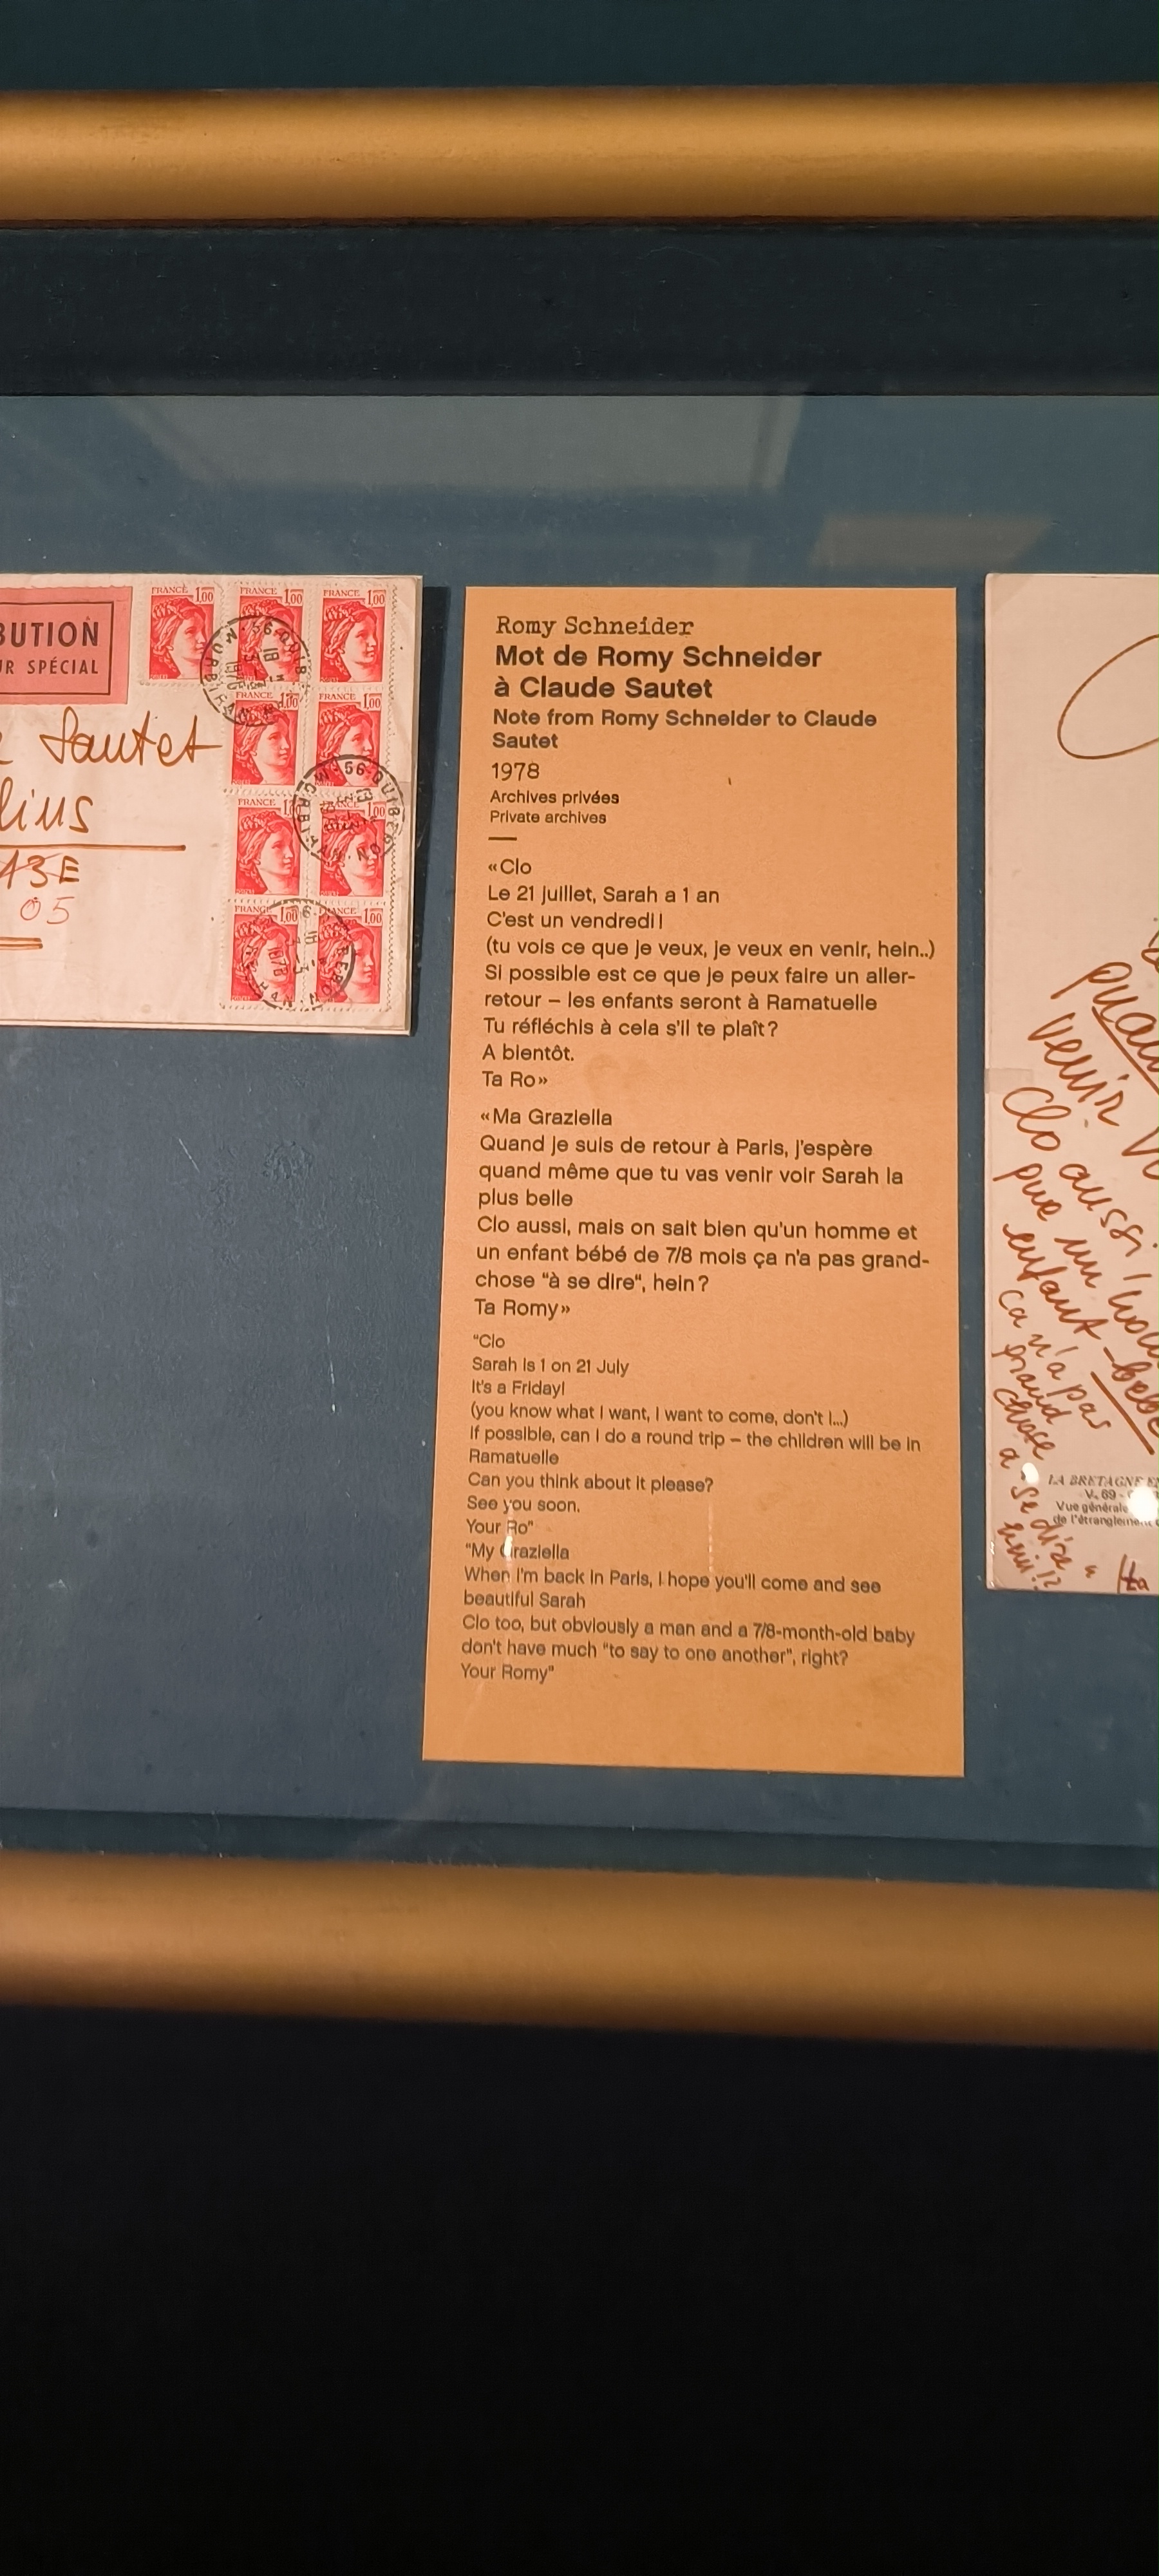 BUTION
UR SPÉCIAL
Sautet
lius
13E
05
FRANCE 1,00
FRANCE 1,00
FRANCE 1,00
1,00
FRANCE 1,00
FRANCE
1,00
FRANCE 1,00
1,00
56 QUIB
18
MORBIHAN
56 QUIBER
1978
Romy Schneider
Mot de Romy Schneider
à Claude Sautet
Note from Romy Schneider to Claude
Sautet
1978
Archives privées
Private archives
«Clo
Le 21 juillet, Sarah a 1 an
C'est un vendredi!
(tu vois ce que je veux, je veux en venir, hein..)
Si possible est ce que je peux faire un aller-
retour – les enfants seront à Ramatuelle
Tu réfléchis à cela s'il te plaît?
A bientôt.
Ta Ro»
«Ma Graziella
Quand je suis de retour à Paris, j'espère
quand même que tu vas venir voir Sarah la
plus belle
Clo aussi, mais on sait bien qu'un homme et
un enfant bébé de 7/8 mois ça n'a pas grand-
chose "à se dire", hein?
Ta Romy»
"Clo
Sarah is 1 on 21 July
It's a Friday!
(you know what I want, I want to come, don't I...)
If possible, can I do a round trip – the children will be in
Ramatuelle
Can you think about it please?
See you soon.
Your Ro"
"My Graziella
When I'm back in Paris, I hope you'll come and see
beautiful Sarah
Clo too, but obviously a man and a 7/8-month-old baby
don't have much "to say to one another", right?
Your Romy"
venir
Clo aussi!
que un
enfant-bébé
ça n'a pas
grand
chose
à "se dire"
hein!?
LA BRETAGNE
V. 69
Vue générale
de l'étranglement